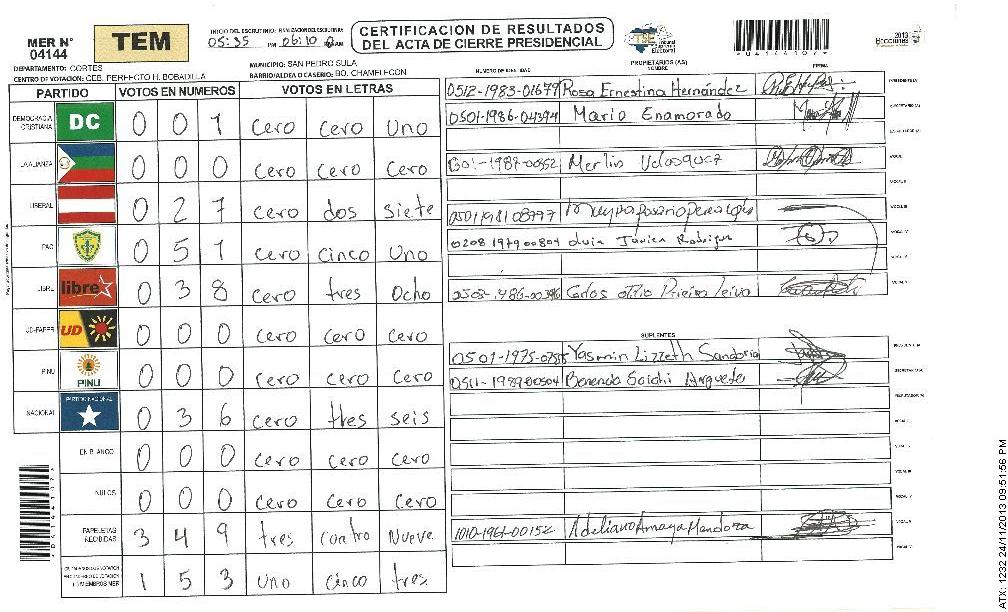 MER N° 04144
TEM
INICIO DEL ESCRUTINIO: FINALIZACION DEL ESCRUTINIO:
05:35 PM 06:10 AM
CERTIFICACION DE RESULTADOS
DEL ACTA DE CIERRE PRESIDENCIAL
TSE Tribunal Supremo Electoral
2013 Elecciones
DEPARTAMENTO: CORTES
MUNICIPIO: SAN PEDRO SULA
CENTRO DE VOTACION: CEB. PERFECTO H. BOBADILLA
BARRIO/ALDEA O CASERIO: BO. CHAMELECON
PARTIDO VOTOS EN NUMEROS VOTOS EN LETRAS
DEMOCRACIA CRISTIANA DC 0 0 1 cero cero Uno
LA ALIANZA 0 0 0 cero cero cero
LIBERAL 0 2 7 cero dos siete
PAC 0 5 1 cero cinco Uno
LIBRE libre 0 3 8 cero tres Ocho
UD-FAPER UD 0 0 0 cero cero cero
PINU PINU 0 0 0 cero cero cero
NACIONAL PARTIDO NACIONAL 0 3 6 cero tres seis
EN BLANCO 0 0 0 cero cero cero
NULOS 0 0 0 cero cero cero
PAPELETAS RECIBIDAS 3 4 9 tres cuatro Nueve
1 5 3 uno cinco tres
NUMERO DE IDENTIDAD PROPIETARIOS (AS) NOMBRE FIRMA
0512-1983-01679 Rosa Ernestina Hernández PRESIDENTE (A)
0501-1986-04394 Mario Enamorado SECRETARIO (A)
ESCRUTADOR (A)
Merlin Velasquez VOCAL I
VOCAL II
0501198108997 VOCAL III
0208 1979 00804 Luis Javier Rodriguez VOCAL IV
VOCAL V
Carlos
SUPLENTES
Yasmin Lizzeth Sandoria PRESIDENTE (A)
0511-198900504 SECRETARIO (A)
ESCRUTADOR (A)
VOCAL I
VOCAL II
VOCAL III
VOCAL IV
1010-1961-00152 Adeliano Amaya Mendoza VOCAL V
VOCAL VI
ATX: 1232 24/11/2013 09:51:56 PM